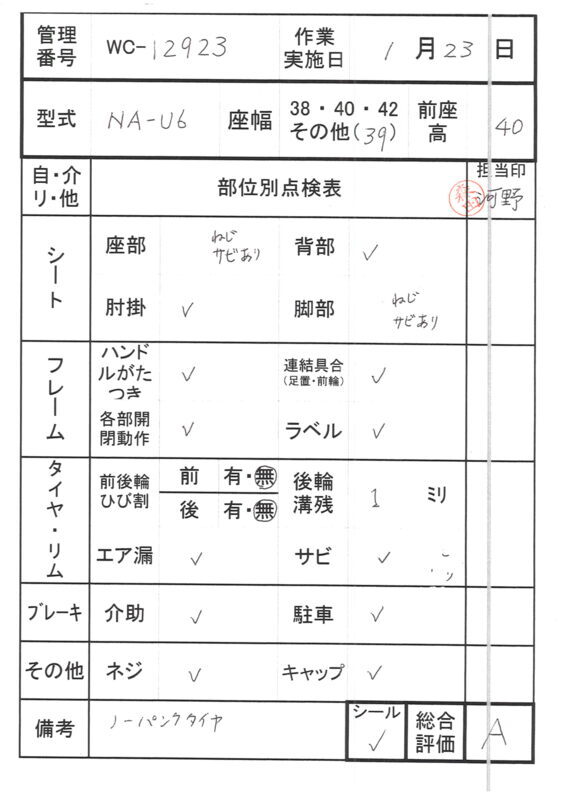 管理番号 WC-12923 作業実施日 1月23日
型式 NA-U6 座幅 38・40・42 その他(39) 前座高 40
自・介リ・他 部位別点検表 担当印 河野
シート 座部 ねじサビあり 背部 ✓
肘掛 ✓ 脚部 ねじサビあり
フレーム ハンドルがたつき ✓ 連結具合(足置・前輪) ✓
各部開閉動作 ✓ ラベル ✓
タイヤ・リム 前後輪ひび割 前 有・無 後輪溝残 1 ミリ
後 有・無
エア漏 ✓ サビ ✓
ブレーキ 介助 ✓ 駐車 ✓
その他 ネジ ✓ キャップ ✓
備考 ノーパンクタイヤ シール ✓ 総合評価 A